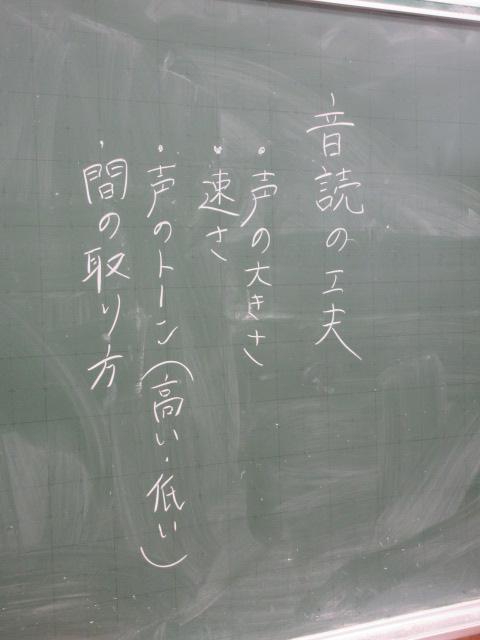 音読の工夫
・声の大きさ
・速さ
・声のトーン(高い・低い)
・間の取り方